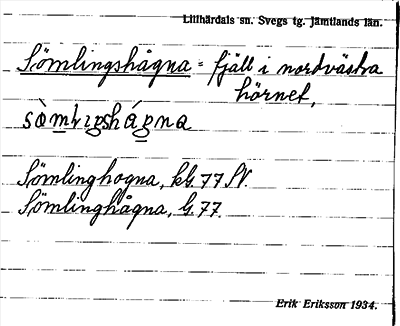 Lillhärdals sn. Svegs tg. Jämtlands län.
Sömlingshågna = fjäll i nordvästra
hörnet.
Sömlinghogna, kb. 77 SV.
Sömlinghågna, G. 77.
Erik Eriksson 1934.